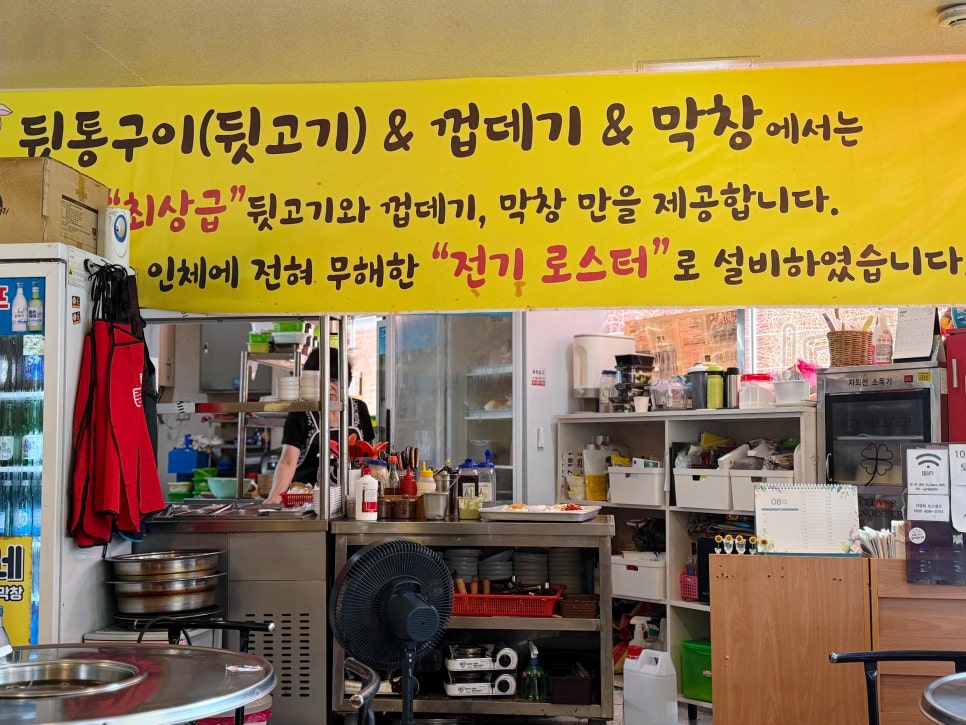 뒷통구이(뒷고기) & 껍데기 & 막창에서는
“최상급”뒷고기와 껍데기, 막창 만을 제공합니다.
인체에 전혀 무해한 “전기 로스터”로 설비하였습니다.
자외선 소독기
STERILIZER
WiFi
08
막창